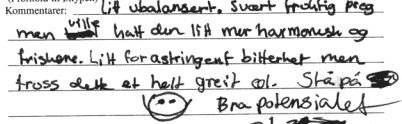 Kommentarer: Litt ubalansert. Svært fruktig preg
men ville hatt den litt mer harmonisk og
friskere. Litt for astringent bitterhet men
tross dette et helt greit øl. Stå på
Bra potensiale!